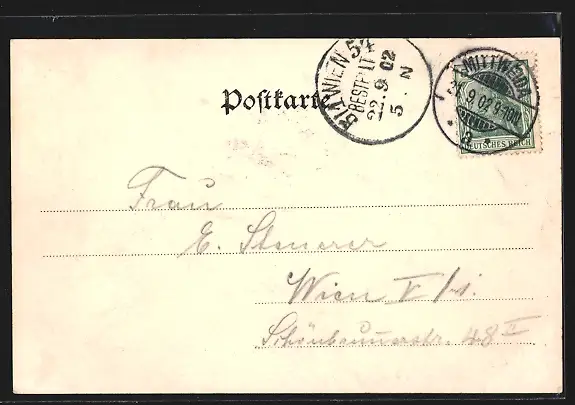 Postkarte
5/1 WIEN 54
BESTELLT
22.9.02
5. N
MITTWEIDA
21.9.02 9-10N.
* a *
DEUTSCHES REICH
Frau
E. Stenerer
Wien V/1.
Schönbrunnerstr. 48 II